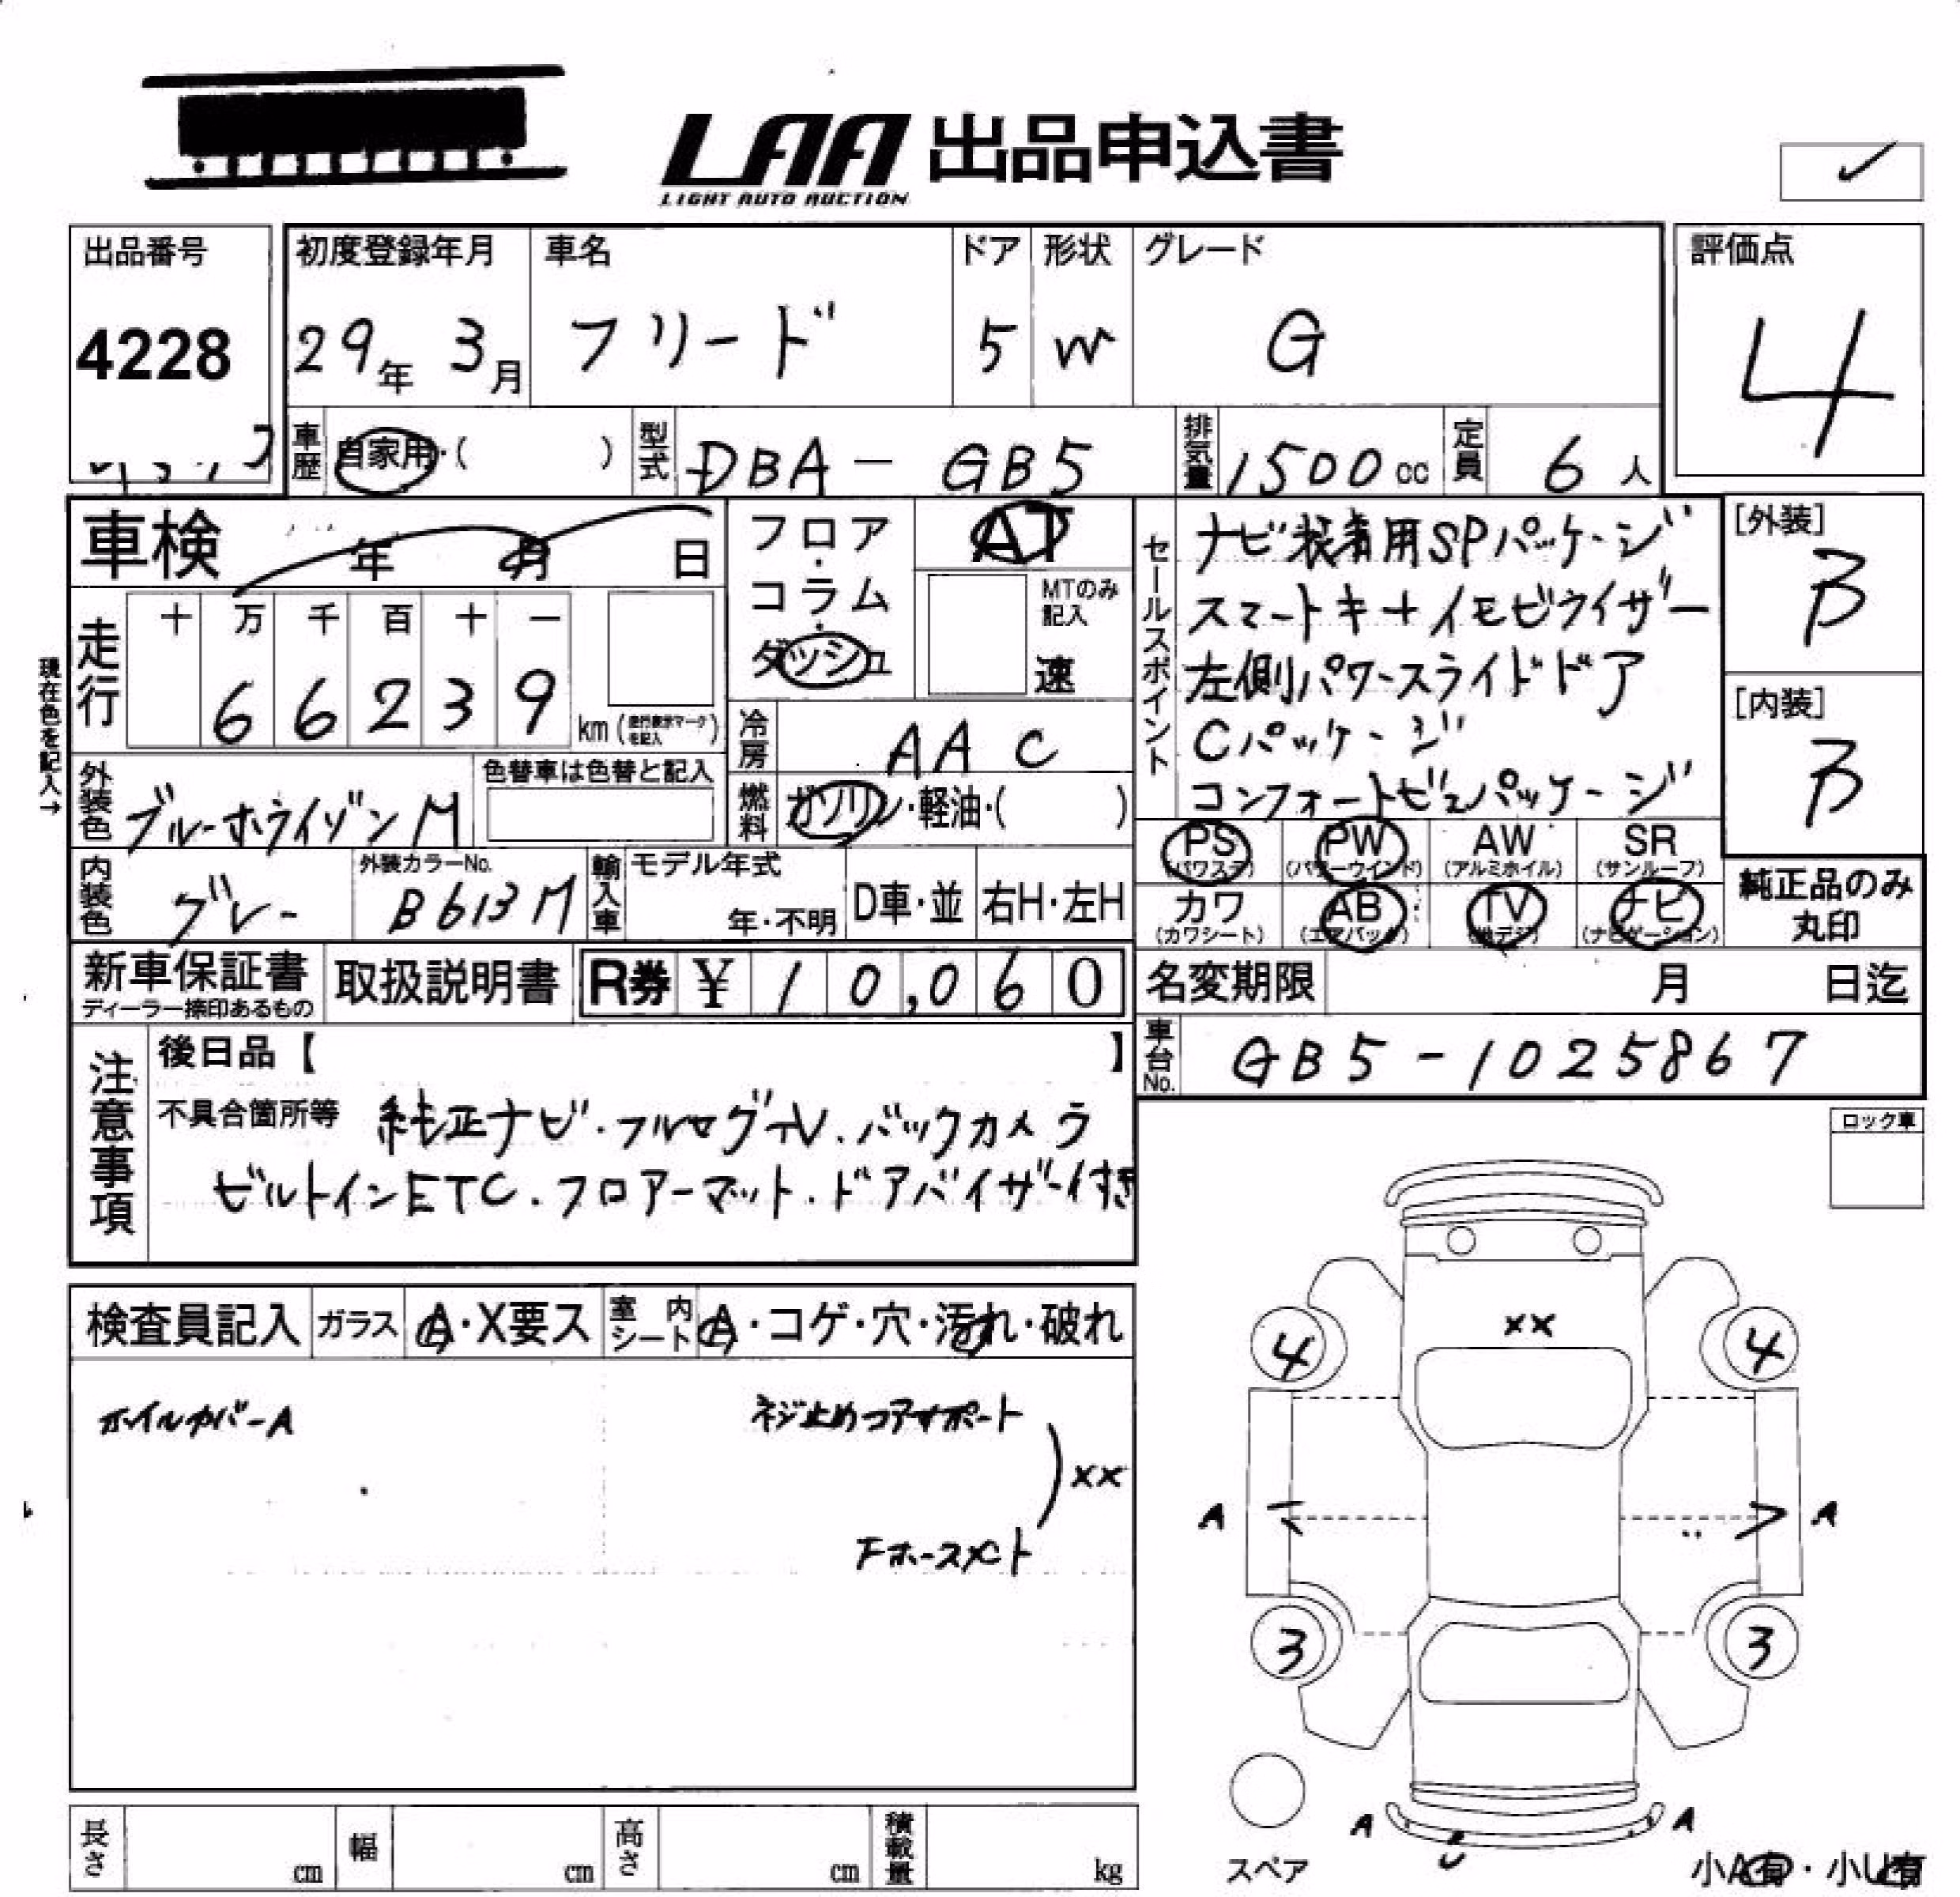 LAA 出品申込書
LIGHT AUTO AUCTION
出品番号
4228
初度登録年月
29年 3月
車名
フリード
ドア
5
形状
W
グレード
G
評価点
4
車歴 自家用・( )
型式 DBA - GB5
排気量 1500 cc
定員 6 人
車検 年 月 日
フロア・コラム・ダッシュ
AT
MTのみ記入
速
セールスポイント
ナビ装着用SPパッケージ
スマートキー+イモビライザー
左側パワースライドドア
Cパッケージ
コンフォートビューパッケージ
[外装]
B
[内装]
B
現在色を記入→
走行
十 万 千 百 十 一
6 6 2 3 9
km (走行表示マークを記入)
冷房 AAC
燃料 ガソリン・軽油・( )
外装色 ブルーホライゾンM
色替車は色替と記入
内装色 グレー
外装カラーNo.
B613M
輸入車
モデル年式
年・不明
D車・並
右H・左H
PS (パワステ)
PW (パワーウインド)
AW (アルミホイル)
SR (サンルーフ)
カワ (カワシート)
AB (エアバック)
TV (地デジ)
ナビ (ナビゲーション)
純正品のみ
丸印
新車保証書
ディーラー捺印あるもの
取扱説明書
R券 ¥ 10,060
名変期限 月 日迄
車台No. GB5-1025867
注意事項
後日品【 】
不具合箇所等 純正ナビ・フルセグTV・バックカメラ
ビルトインETC・フロアーマット・ドアバイザー付き
ロック車
検査員記入
ガラス A・X要ス
室内シート A・コゲ・穴・汚れ・破れ
ホイルカバーA
ネジ止めコアサポート
XX
Fホースメント
XX
4 4
A A
3 3
A A
U
スペア
小A有・小U有
長さ cm
幅 cm
高さ cm
積載量 kg